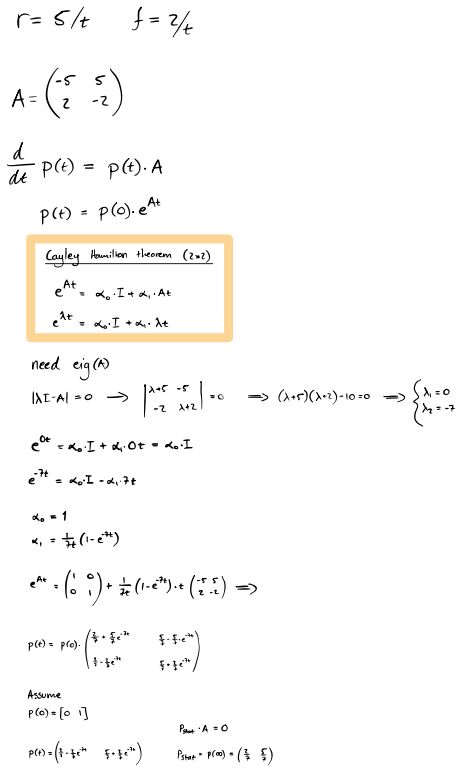 r = 5/t f = 2/t
A = (-5 5
2 -2)
d/dt p(t) = p(t)·A
p(t) = p(0)·e^At
Cayley Hamilton theorem (2×2)
e^At = α₀·I + α₁·At
e^λt = α₀·I + α₁·λt
need eig(A)
|λI-A| = 0 → |λ+5 -5
-2 λ+2| = 0 ⇒ (λ+5)(λ+2)-10=0 ⇒ {λ₁=0
λ₂=-7
e^0t = α₀·I + α₁·0t = α₀·I
e^-7t = α₀·I - α₁·7t
α₀ = 1
α₁ = 1/7t (1-e^-7t)
e^At = (1 0
0 1) + 1/7t (1-e^-7t)·t (-5 5
2 -2) ⇒
p(t) = p(0)·(2/7 + 5/7 e^-7t 5/7 - 5/7·e^-7t
2/7 - 2/7 e^-7t 5/7 + 2/7 e^-7t)
Assume
p(0) = [0 1]
P_stat · A = 0
p(t) = (2/7 - 2/7 e^-7t 5/7 + 2/7 e^-7t) P_stat = p(∞) = (2/7 5/7)